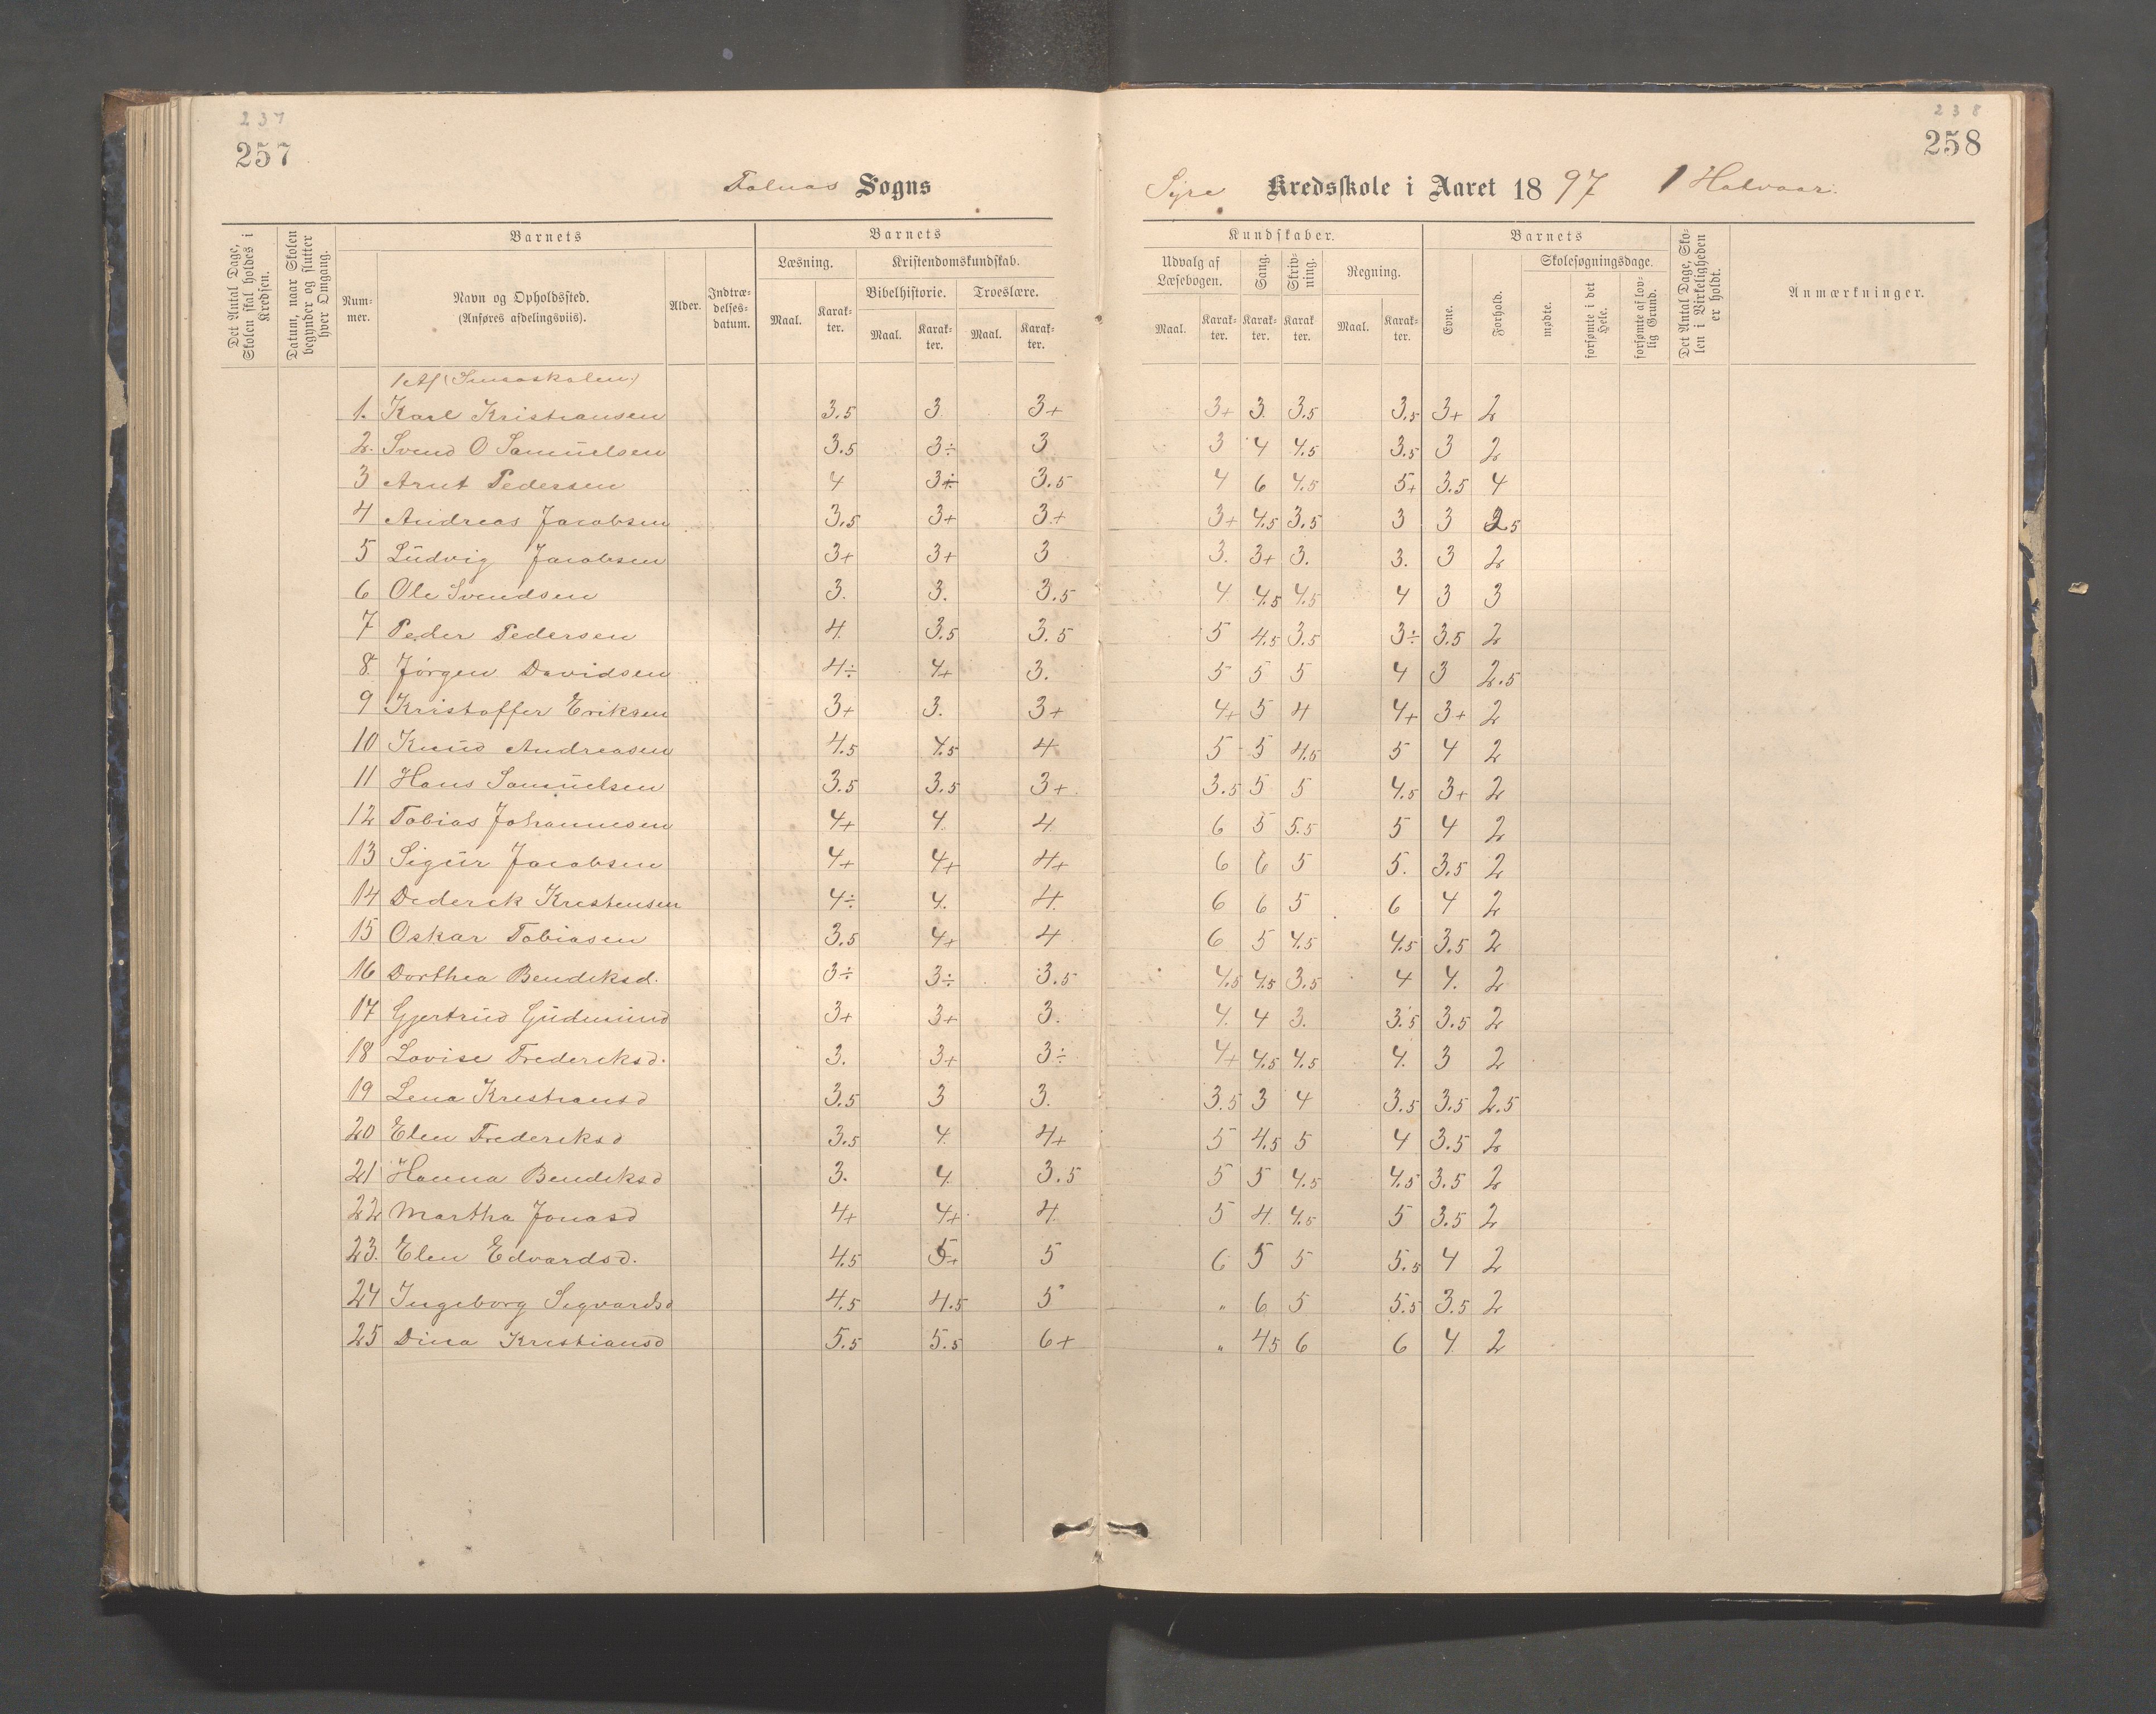 237
257
Falnæs Sogns
238
258
Syre Kredsskole i Aaret 1897 1 Halvaar.
Det Antal Dage, Skolen skal holdes i Kredsen.
Datum, naar Skolen begynder og slutter hver Omgang.
Barnets
Nummer.
Navn og Opholdssted.
(Anføres afdelingsviis).
Alder.
Indtrædelsesdatum.
Barnets
Læsning.
Maal. Karakter.
Kristendomskundskab.
Bibelhistorie. Troeslære.
Maal. Karakter. Maal. Karakter.
Kundskaber.
Udvalg af Læsebogen. Sang. Skrivning. Regning.
Maal. Karakter. Karakter. Karakter. Maal. Karakter.
Barnets
Evne. Forhold.
Skolesøgningsdage.
mødte. forsømte i det Hele. forsømte af lovlig Grund.
Det Antal Dage, Skolen i Virkeligheden er holdt.
Anmærkninger.
1 Af (Smaaskolen)
1. Karl Kristiansen 3.5 3 3+ 3+ 3. 3.5 3.5 3+ 2
2. Svend O Samuelsen 3.5 3÷ 3 3 4 4.5 3.5 3 2
3 Arnt Pedersen 4 3÷ 3.5 4 6 4.5 5+ 3.5 4
4 Andreas Jacobsen 3.5 3+ 3+ 3+ 4.5 3.5 3 3 2.5
5 Ludvig Jacobsen 3+ 3+ 3 3. 3+ 3. 3. 3 2
6 Ole Svendsen 3. 3. 3.5 4 4.5 4.5 4 3 3
7 Peder Pedersen 4. 3.5 3.5 5 4.5 3.5 3÷ 3.5 2
8. Jörgen Davidsen 4÷ 4+ 3. 5 5 5 4 3 2.5
9 Kristoffer Eriksen 3+ 3. 3+ 4+ 5 4 4+ 3+ 2
10 Knud Andreasen 4.5 4.5 4 5 5 4.5 5 4 2
11 Hans Samuelsen 3.5 3.5 3+ 3.5 5 5 4.5 3+ 2
12 Tobias Johannesen 4+ 4. 4. 6 5 5.5 5 4 2
13 Sigur Jacobsen 4+ 4+ 4+ 6 6 5 5. 3.5 2
14 Dederek Krestensen 4÷ 4. 4. 6 6 5 6 4 2
15 Oskar Tobiasen 3.5 4+ 4 6 5 4.5 4.5 3.5 2
16 Dorthea Bendeksd. 3÷ 3÷ 3.5 4.5 4.5 3.5 4 4. 2
17 Gjertrud Gudmund 3+ 3+ 3. 4. 4 3. 3.5 3.5 2
18 Lovise Frederiksd. 3. 3+ 3÷ 4+ 4.5 4.5 4. 3 2
19 Lena Krestiansd 3.5 3 3. 3.5 3 4 3.5 3.5 2.5
20 Elen Frederiksd 3.5 4. 4+ 5 4.5 5 4 3.5 2
21 Hanna Bendeksd 3. 4. 3.5 5 5 4.5 4.5 3.5 2
22 Martha Jonasd 4+ 4+ 4. 5 4. 4.5 5 3.5 2
23. Elen Edvardsd. 4.5 5+ 5 6 5 5 5.5 4 2
24 Ingeborg Segvardsd 4.5 4.5 5 " 6 5 5.5 3.5 2
25 Dina Krestiansd 5.5 5.5 6+ " 45 6 6 4. 2